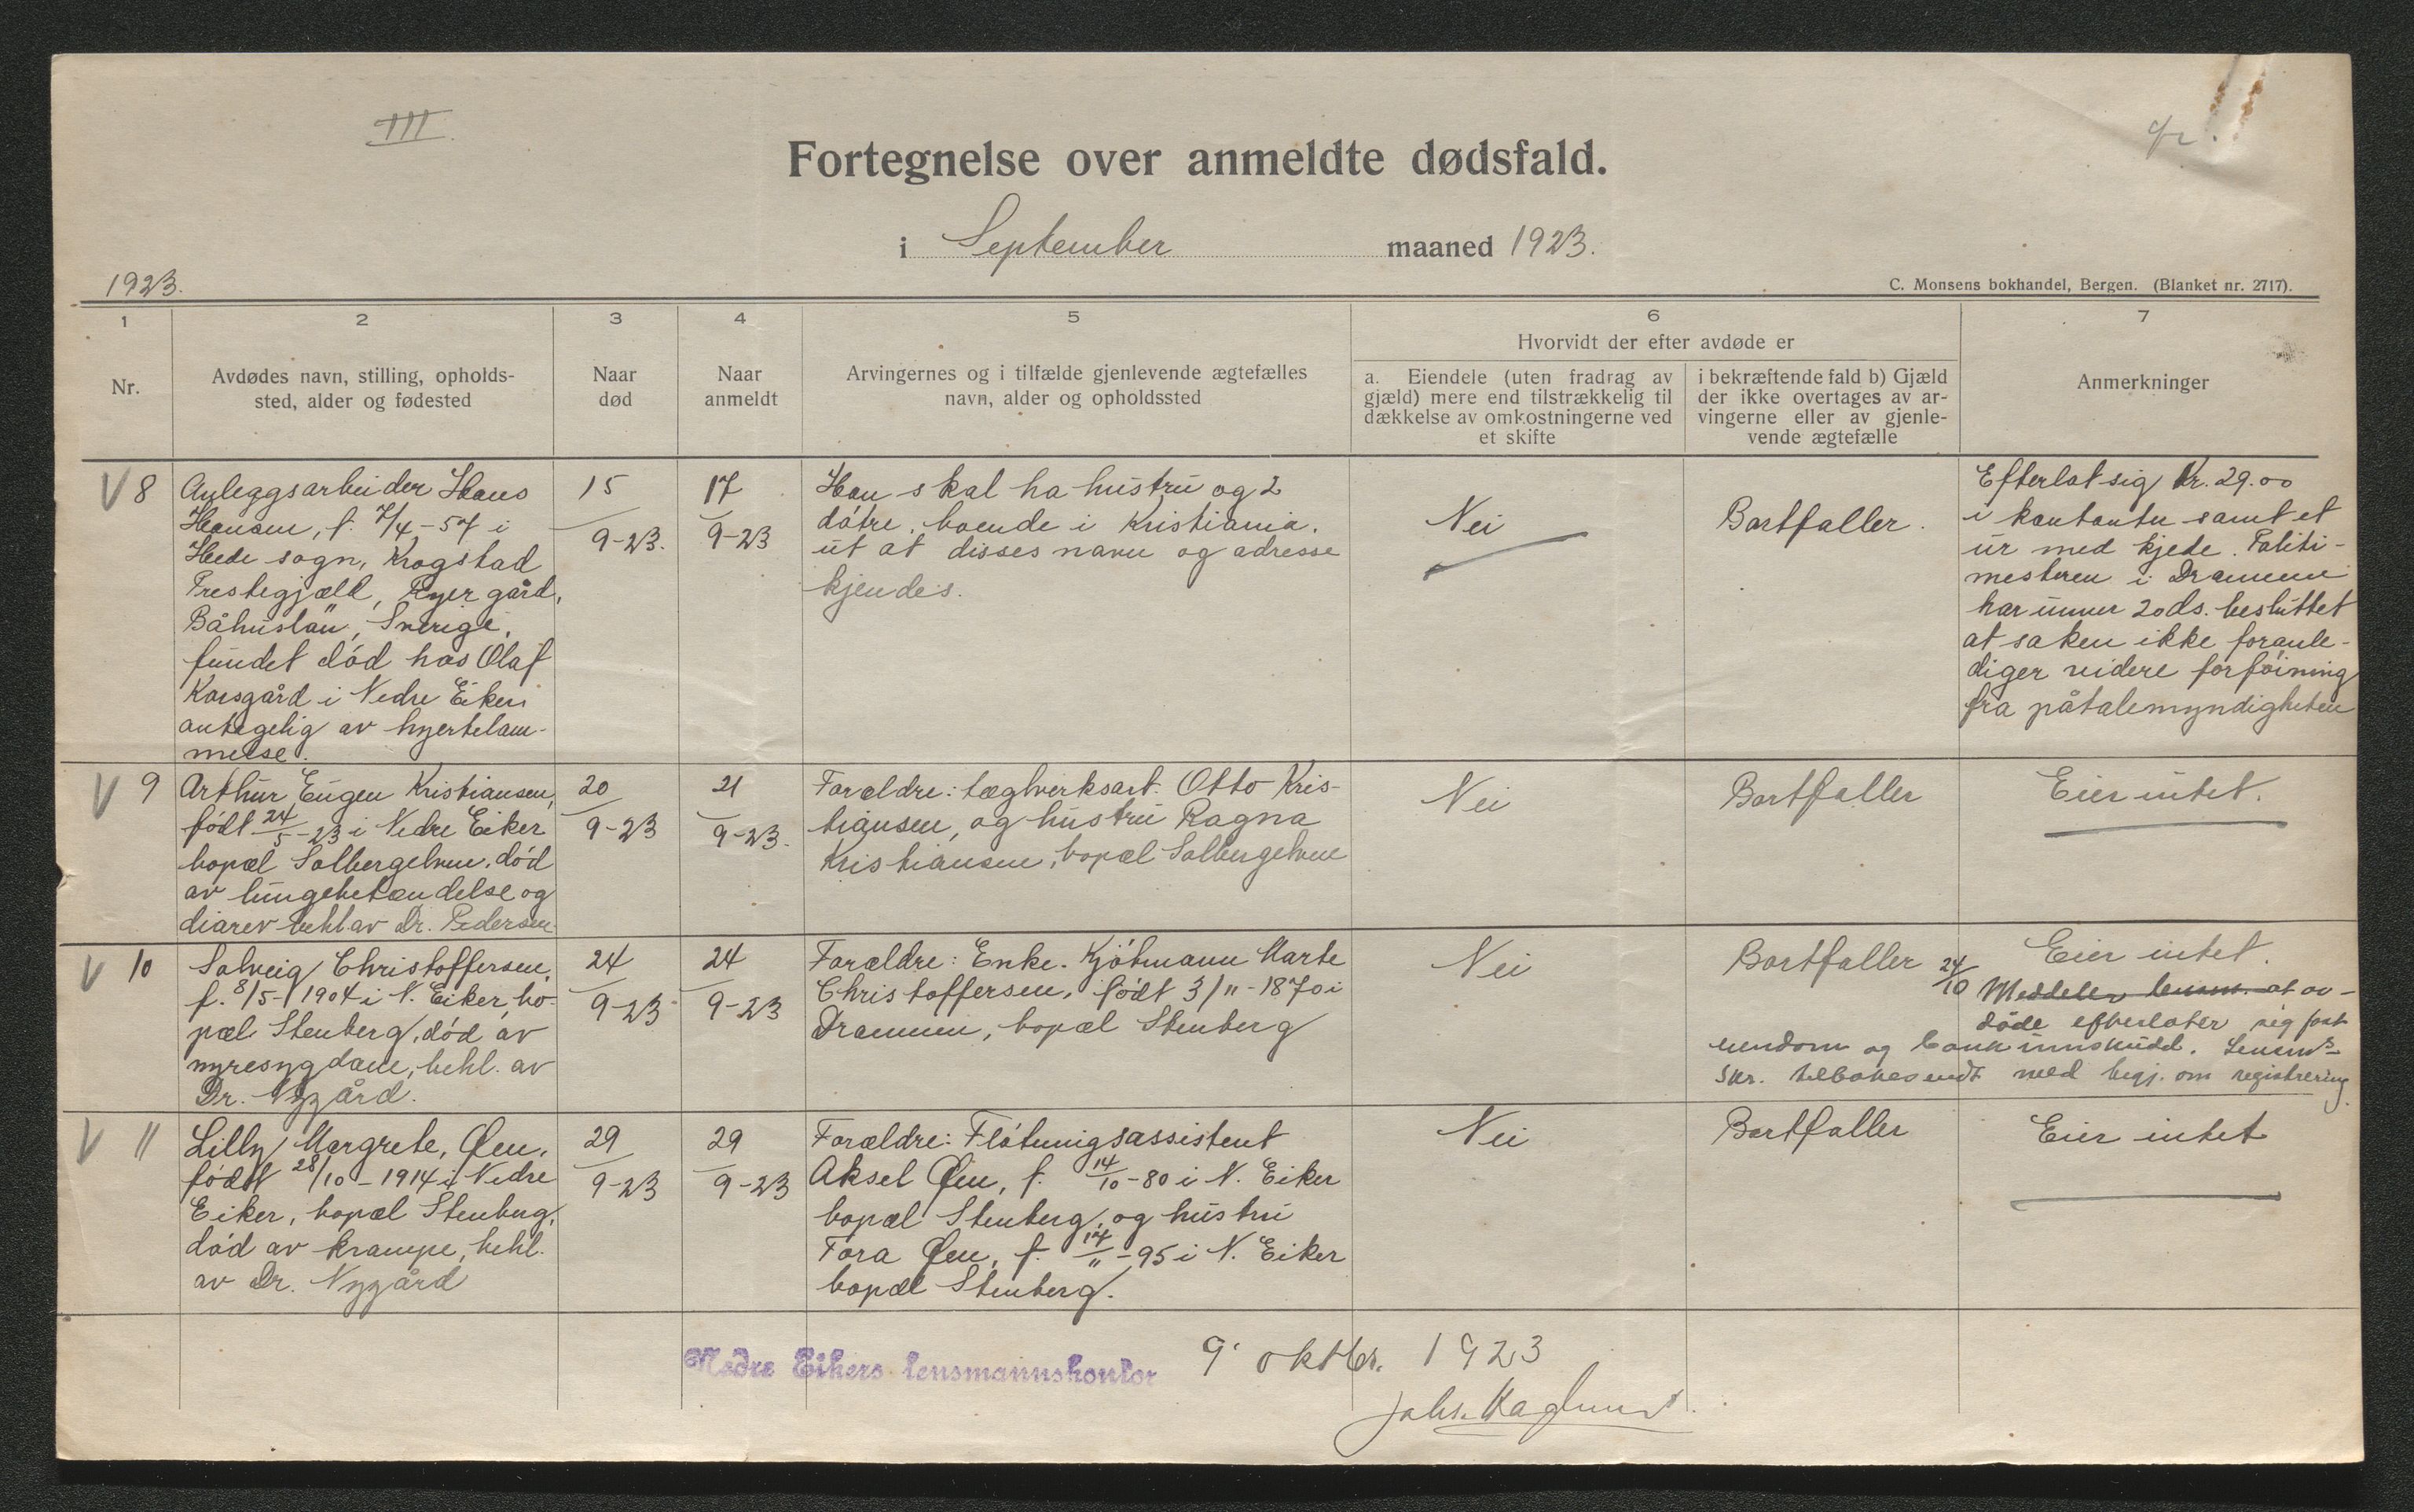 III.
Fortegnelse over anmeldte dødsfald.
i September maaned 1923.
1923.
C. Monsens bokhandel, Bergen. (Blanket nr. 2717).
1
2
3
4
5
6
7
Nr.
Avdødes navn, stilling, opholds-
sted, alder og fødested
Naar
død
Naar
anmeldt
Arvingernes og i tilfælde gjenlevende ægtefælles
navn, alder og opholdssted
Hvorvidt der efter avdøde er
a. Eiendele (uten fradrag av
gjæld) mere end tilstrækkelig til
dækkelse av omkostningerne ved
et skifte
i bekræftende fald b) Gjæld
der ikke overtages av ar-
vingerne eller av gjenle-
vende ægtefælle
Anmerkninger
V 8
Anleggsarbeider Hans
Hansen, f. 7/4-57 i
Hede sogn, Krogstad
Prestegjæld, Ryer gård,
Båhuslän, Sverige,
fundet død hos Olaf
Korsgård i Nedre Eiker
antagelig av hjertelam-
melse.
15
9-23.
17
9-23
Han skal ha hustru og 2
døtre, boende i Kristiania.
ut at disses navn og adresse
kjendes.
Nei
Bortfaller.
Efterlot sig Kr. 29.00
i kontanter samt et
ur med kjede. Politi-
mesteren i Drammen
har under 20 ds. besluttet
at saken ikke foranle-
diger videre forføining
fra påtalemyndigheten
V 9
Arthur Eugen Kristiansen,
født 24/5-23 i Nedre Eiker
bopæl Solbergelven, død
av lungebetændelse og
diarev behl. av Dr. Pedersen
20
9-23
21
9-23.
Forældre: teglverksarb. Otto Kris-
tiansen, og hustru Ragna
Kristiansen, bopæl Solbergelven
Nei
Bortfaller
Eier intet.
V 10
Solveig Christoffersen,
f. 8/5-1904 i N. Eiker, bo-
pæl Stenberg, død av
nyresygdom, behl. av
Dr. Nygård.
24
9-23
24
9-23
Forældre: Enke. Kjøtmann Marte
Christoffersen, født 3/11-1870 i
Drammen, bopæl Stenberg
Nei
Bortfaller
Eier intet.
24/10 Meddeler lensm. at av-
døde efterlater sig fast
eiendom og bankinnskudd. Lensms
skr. tilbakesendt med begj. om registrering.
V 11
Lilly Margrete, Øen,
født 28/10-1914 i Nedre
Eiker, bopæl Stenberg,
død av krampe, behl.
av Dr. Nygård
29
9-23
29
9-23
Forældre: Fløtningsassistent
Aksel Øen, f. 14/10-80 i N. Eiker
bopæl Stenberg, og hustru
Tora Øen, f. 14/11-95 i N. Eiker
bopæl Stenberg.
Nei
Bortfaller
Eier intet
Nedre Eikers lensmannskontor 9. oktbr. 1923